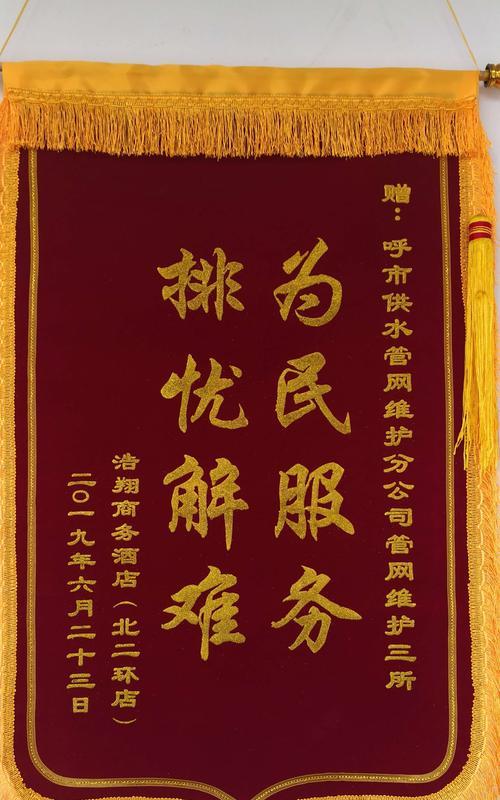 赠：呼市供水管网维护分公司管网维护三所
为民服务
排忧解难
浩翔商务酒店（北二环店）
二〇一九年六月二十三日